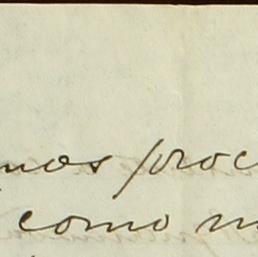 mos proc
como m